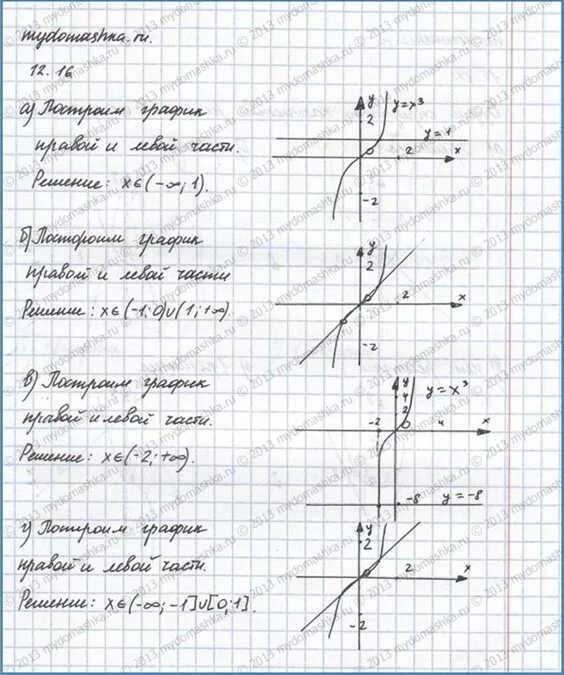 mydomashka.ru.
12.16
а) Построим график
правой и левой части.
Решение: x∈(-∞; 1).
y
2
y=x³
y=1
2
x
-2
б) Постороим график
правой и левой части
Решение: x∈(-1; 0)∪(1; +∞).
y
2
2
x
-2
в) Построим график
правой и левой части.
Решение: x∈(-2; +∞).
y
4
2
y=x³
-2
4
x
-8
y=-8
г) Построим график
правой и левой части.
Решение: x∈(-∞; -1]∪[0; 1].
y
2
2
x
-2
© 2013 mydomashka.ru